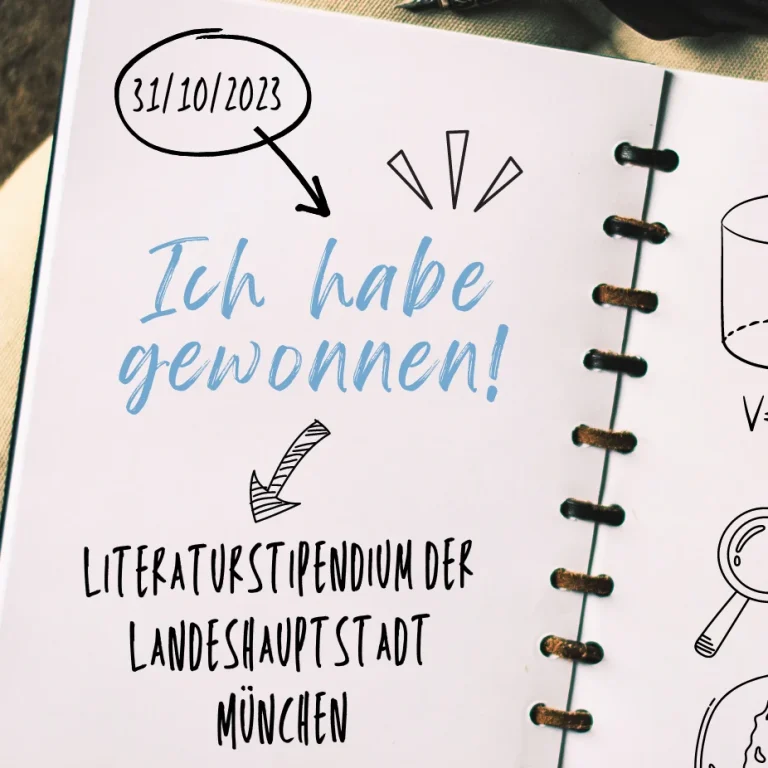 31/10/2023
Ich habe
gewonnen!
LITERATURSTIPENDIUM DER
LANDESHAUPTSTADT
MÜNCHEN
V=